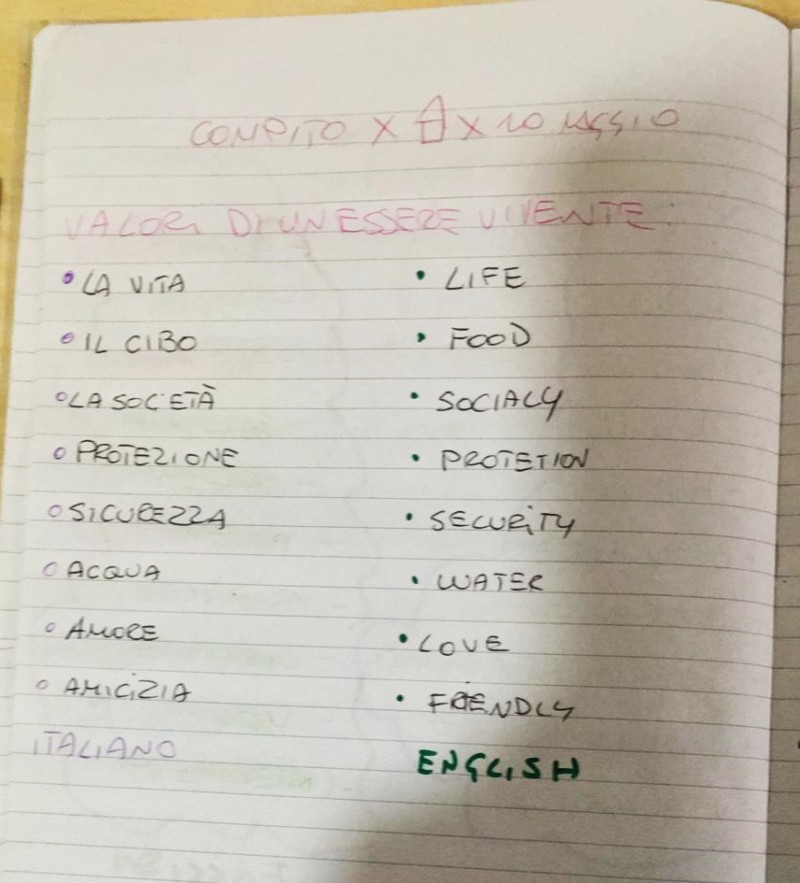 COMPITO X A X 20 MAGGIO
VALORI DI UN ESSERE VIVENTE:
• LA VITA • LIFE
• IL CIBO • FOOD
• LA SOCIETÀ • SOCIALY
• PROTEZIONE • PROTETION
• SICUREZZA • SECURITY
• ACQUA • WATER
• AMORE • LOVE
• AMICIZIA • FRIENDLY
ITALIANO ENGLISH